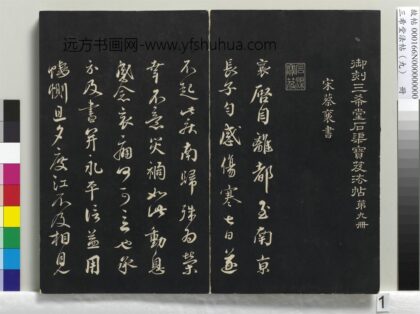 故帖 000166N000000000
三希堂法帖（九） 冊
远方书画网-www.yfshuhua.com
御刻三希堂石渠寶笈法帖 第九冊
宋蔡襄書
襄啓自離都至南京
長子勻感傷寒七日遂
不起此疾南歸殊為榮
幸不意災禍如此動息
感念哀痛何可言也承
示及書并永平信益用
悽惻旦夕度江不及相見
1